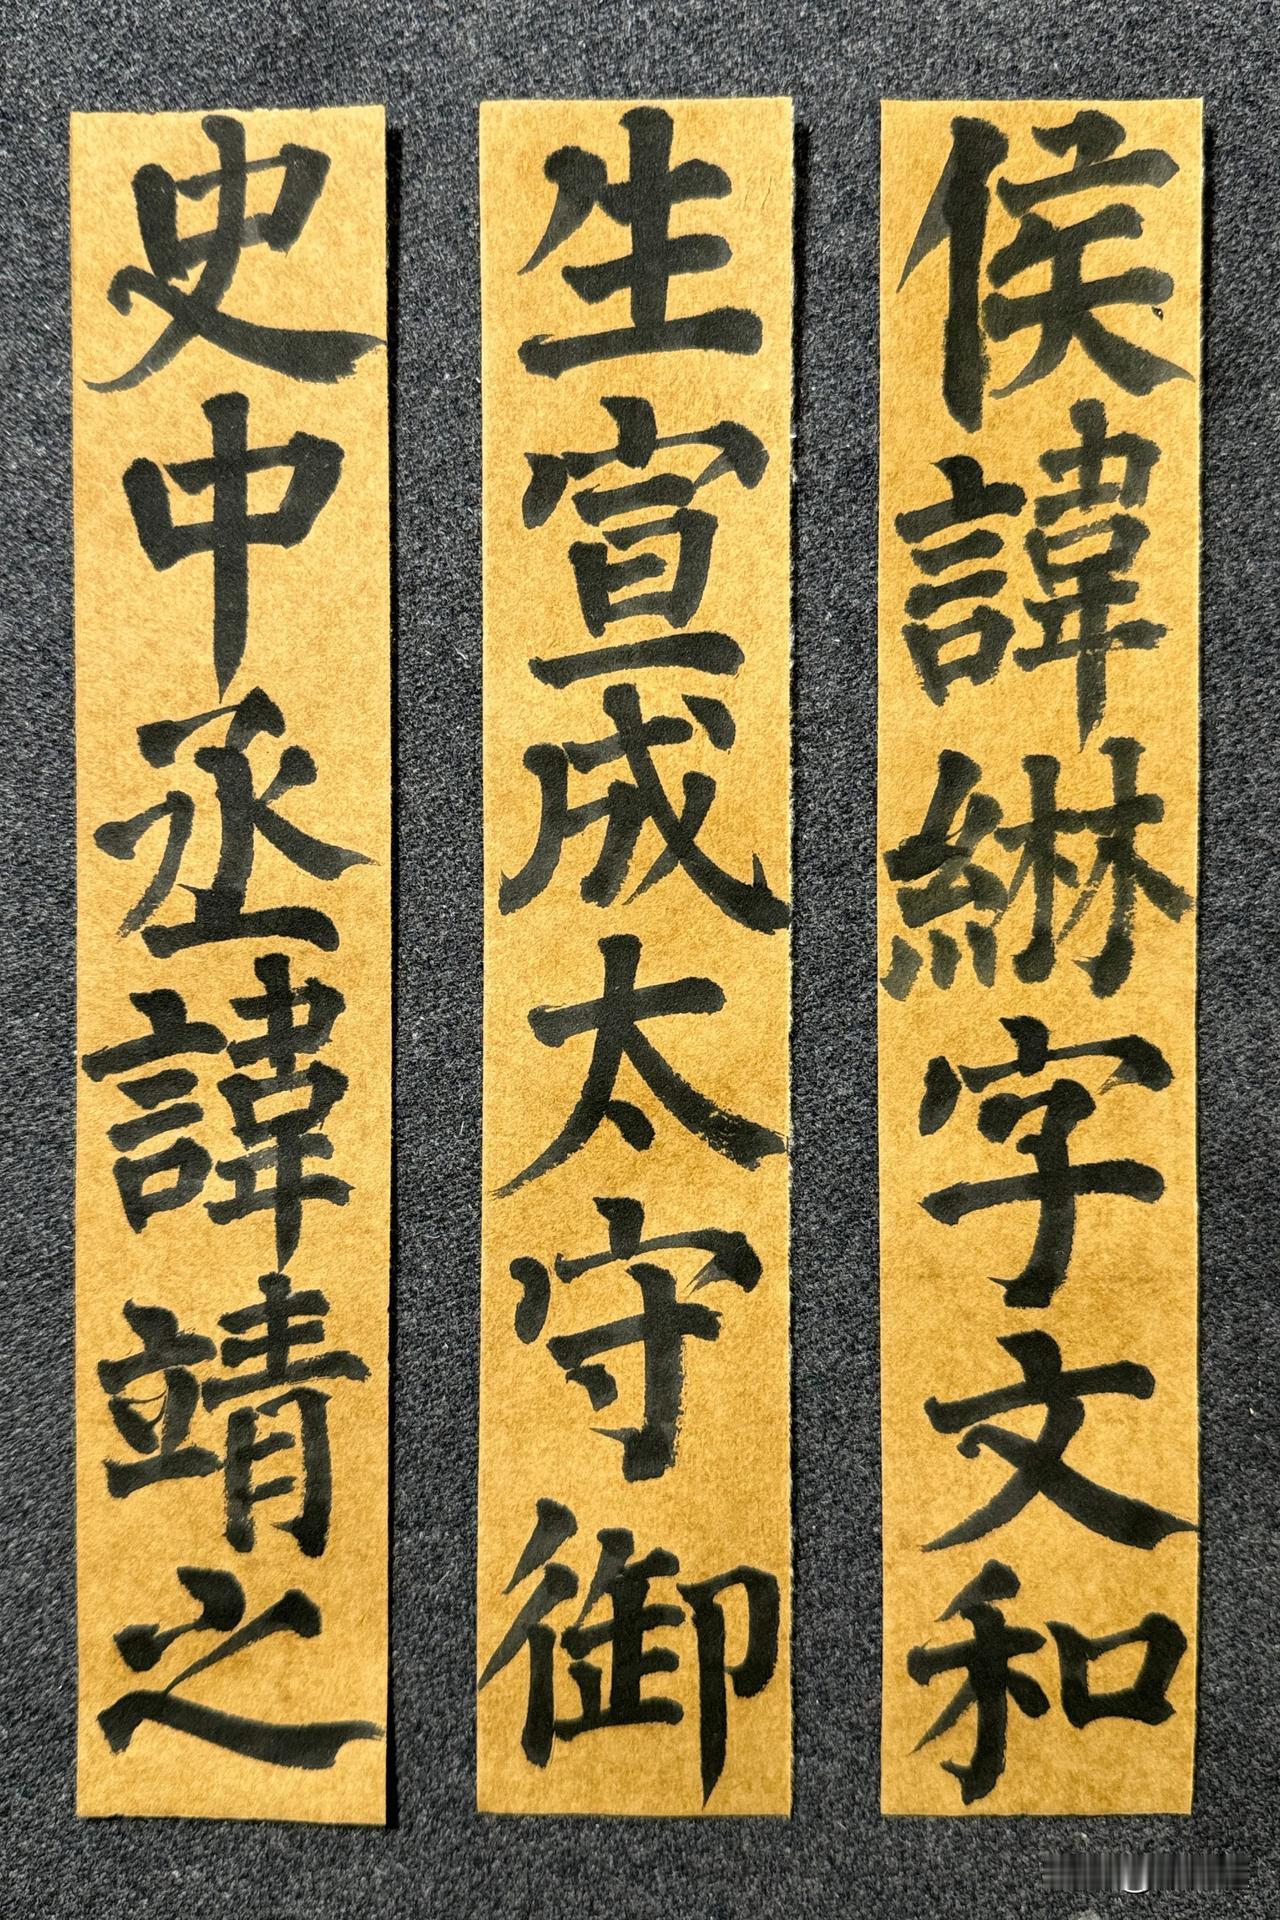 侯諱綝字文和
生宣成太守御
史中丞諱靖之